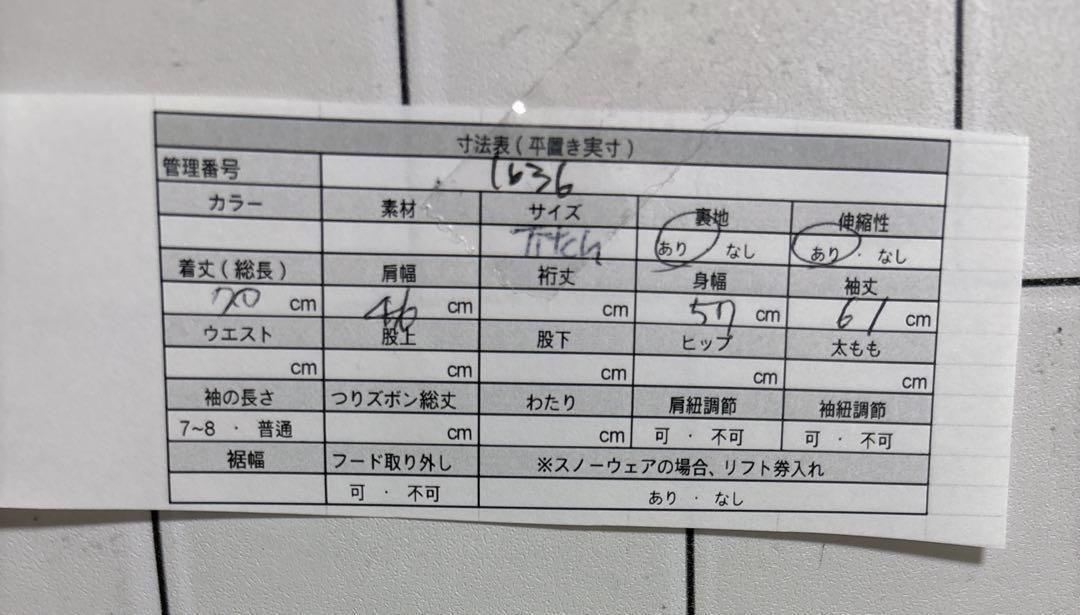 寸法表(平置き実寸)
管理番号 1636
カラー 素材 サイズ 裏地 伸縮性
あり なし あり・なし
着丈(総長) 肩幅 裄丈 身幅 袖丈
70 cm 46 cm cm 57 cm 61 cm
ウエスト 股上 股下 ヒップ 太もも
cm cm cm cm cm
袖の長さ つりズボン総丈 わたり 肩紐調節 袖紐調節
7~8 ・ 普通 cm cm 可 ・ 不可 可 ・ 不可
裾幅 フード取り外し ※スノーウェアの場合、リフト券入れ
可 ・ 不可 あり ・ なし